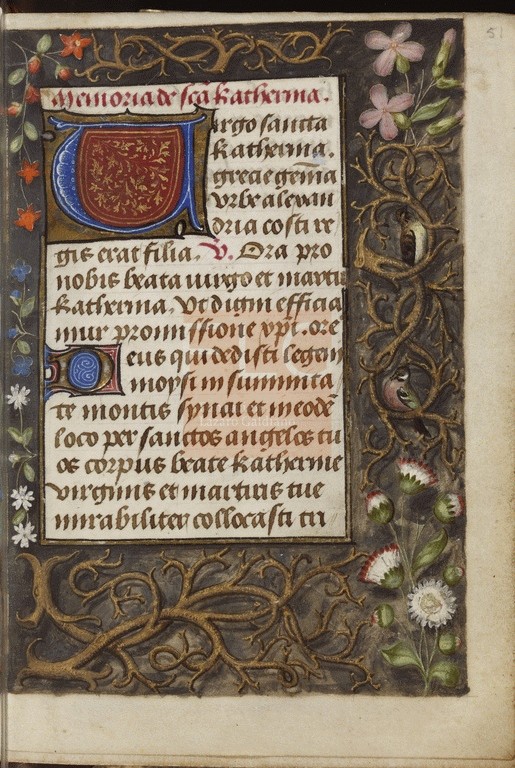 51
Memoria de sc̃a katherina.
Virgo sancta
katherina.
grecie gem̃a
vrbe alexan
dria costi re
gis erat filia. V. Ora pro
nobis beata uirgo et martir
katherina. Vt digni efficia
mur promissione xpi. ore
Deus qui dedisti legem
moysi in summita
te montis synai et in eodẽ
loco per sanctos angelos tu
os corpus beate katherine
virginis et martiris tue
mirabiliter collocasti tri
Lázaro Galdiano